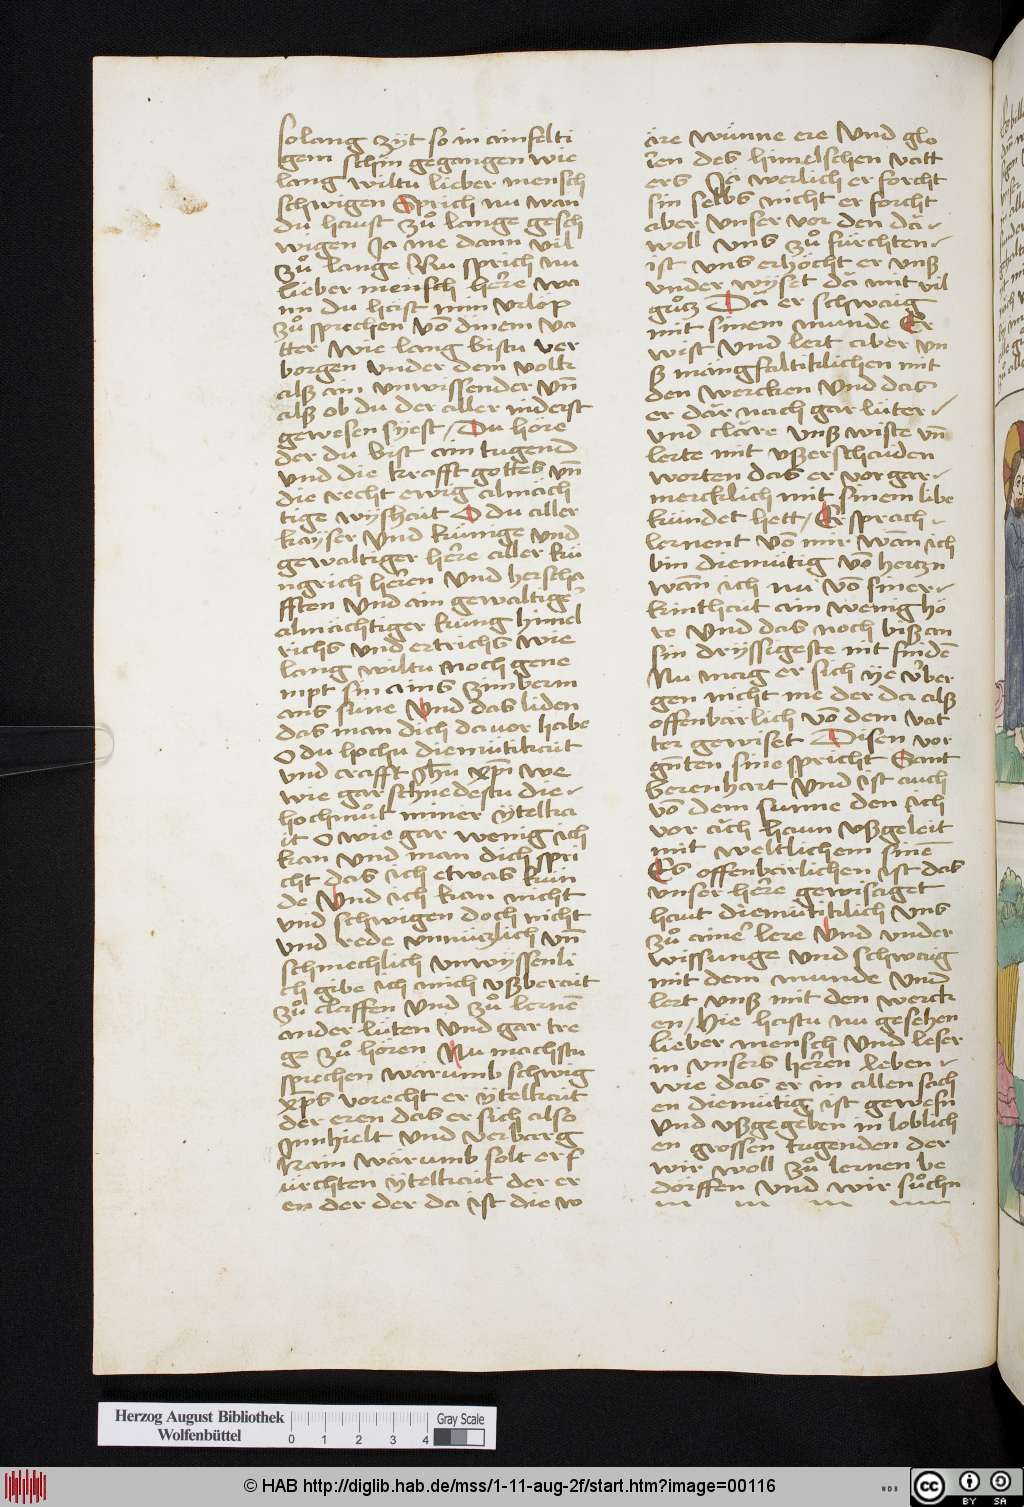 solang zÿt so in ainfelti
gem schin gegangen wie
lang wiltu lieber mensch
schwigen Sprich nu wan
du haust zů lange gesch
wigen Ja me dann vil
zů lange Nu sprich nu
lieber mensch here wa
nn du häst min vrlop
zů sprechen võ dinem va
tter wie lang bistu ver
borgen vnder dem volk
alß ain vnwissender vñ
alß ob du der aller niderst
gewesen sÿest / Du höre
der du bist ain tugend
vnd die krafft gottes vñ
die recht ewig almäch
tige wÿshait O du aller
kayser vnd künige vnd
gewaltiger here aller kü
ngrich heren vnd herscha
fften vnd ain gewaltige
almächtiger küng himel
richs vnd ertrichs wie
lang wiltu noch gene
mpt sin ains zimberm
ans sune Vnd das liden
das man dich davor habe
O du hochu diemütikait
vnd crafft ... we
wie gar schnedestu die
hochmůt miner ÿtelka
it O wie gar wenig ich
kan vnd man dich spri
cht das ich etwas kün
de Vnd ich kan nicht
vnd schwigen doch nicht
vnd rede vnnüczlich vñ
schmechlich vnwÿssenli
ch gibe ich mich vßberait
zů claffen vnd zů lernē
ander lüten vnd gar tre
ge zů hören Nu machstu
sprechen warumb schwig
xp̄s vorecht er ÿtelkait
der eren das er sich also
Innhielt vnd verbarg
Nain warumb solt er f
ürchten ÿtelkait der er
en der der da ist die w
äre wünne ere vnd glo
rien des himelschen vatt
ers Ja werlich er forcht
sin selbs nicht er forcht
aber vnser vor den dä
woll vns zů fürchten
ist vns erhöcht er vnß
vnder wÿset dä mit vil
gůtz Dä er schwaig
mit sinem munde Er
wist vnd lert aber vn
ß mängfaltiklichen mit
den wercken vnd das
er där nach gar lüter
vnd cläre vnß wiste vñ
lerte mit vßerschaiden
worten das er vor gar
mercklich mit sinem libe
kündet hett / Er sprach
lernent võ mir wān ich
bin diemütig võ hertzn
wān ich nu võ siner
kinthait ain wenig hö
re vnd das noch biß an
sin drÿssigeste nit findē
Nu mag er sich ÿe v̈ber
gen nicht me der da alß
offenbärlich võ dem vat
ter gewiset Disen vor
gñten sine spricht Sant
berenhart Vnd ist auch
võ dem sunne den ich
vor äch haun vßgeleit
mit weltlichem sinē
Es offenbärlichen ist das
vnser here gewisaget
haut diemütiklich vns
zů ainer lere Vnd vnder
wissunge vnd schwaig
mit dem munde vnd
lert vnß mit den werck
en / Hie hastu nu gesehen
lieber mensch vnd leser
in vnsers heren leben
wie das er in allen sach
en diemütig ist gewesn
vnd vßgegeben in loblich
en grossen tugenden der
wir woll zů lernen be
dörffen vnd wir sůchn
Herzog August Bibliothek
Wolfenbüttel
0 1 2 3 4
Gray Scale
© HAB http://diglib.hab.de/mss/1-11-aug-2f/start.htm?image=00116
WDB
cc BY SA